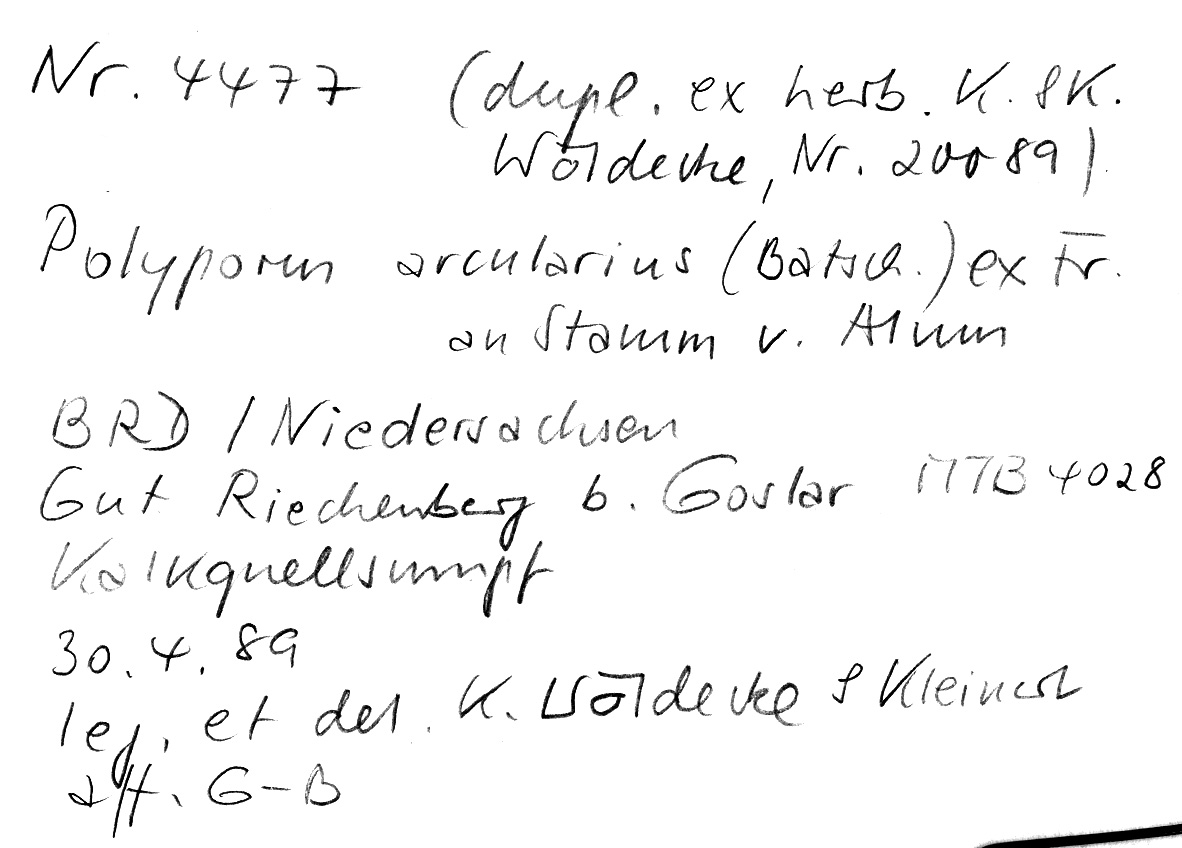 Nr. 4477 (dupl. ex herb. K. & K.
Wöldecke, Nr. 20089)
Polyporus arcularius (Batsch.) ex Fr.
an Stamm v. Alnus
BRD / Niedersachsen
Gut Riechenberg b. Goslar MTB 4028
Kalkquellsumpf
30.4.89
leg. et det. K. Wöldecke & Kleinert
aff. G-B